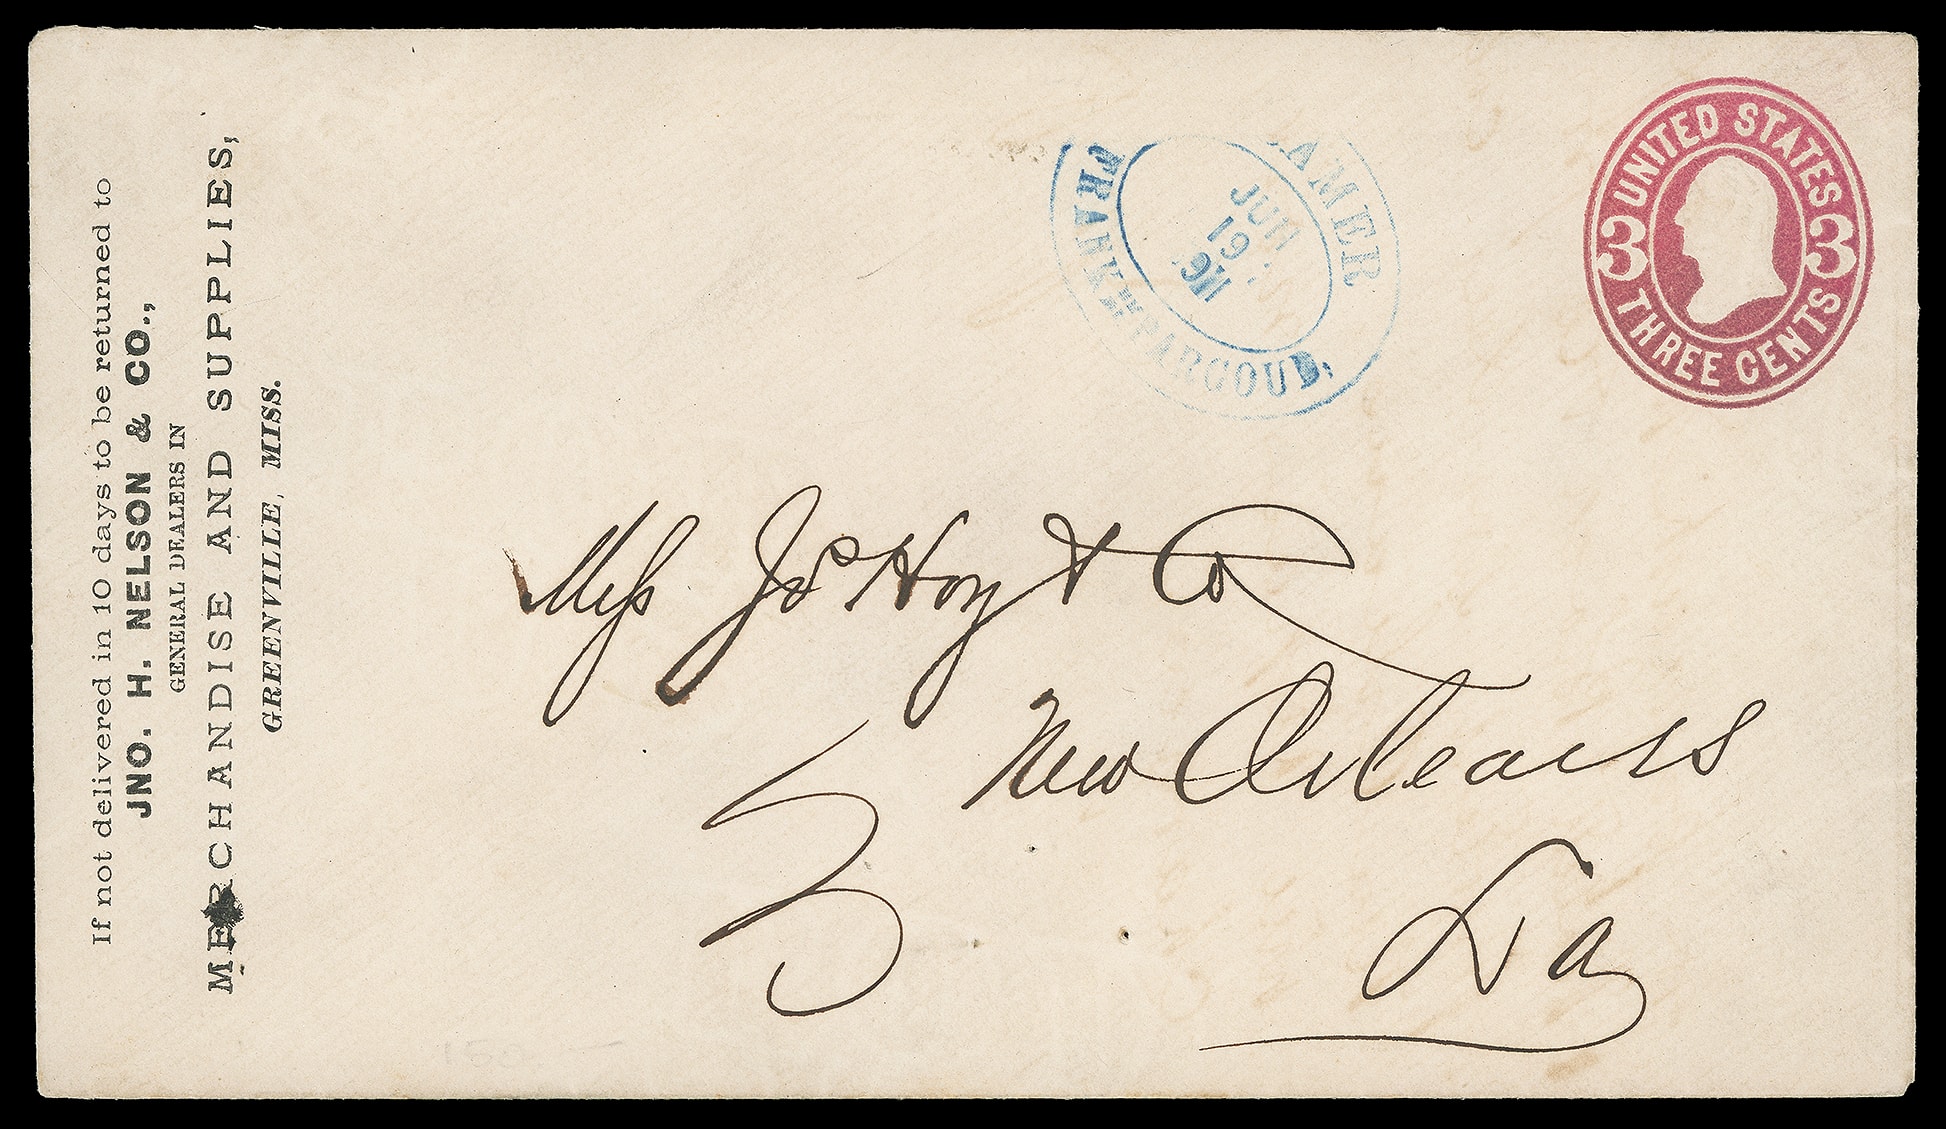 If not delivered in 10 days to be returned to
JNO. H. NELSON & CO.,
GENERAL DEALERS IN
MERCHANDISE AND SUPPLIES,
GREENVILLE, MISS.
AMER
JUN
19
FRANK PARGOUD,
UNITED STATES
3 3
THREE CENTS
Mess Jos Hoy & Co
New Orleans
La